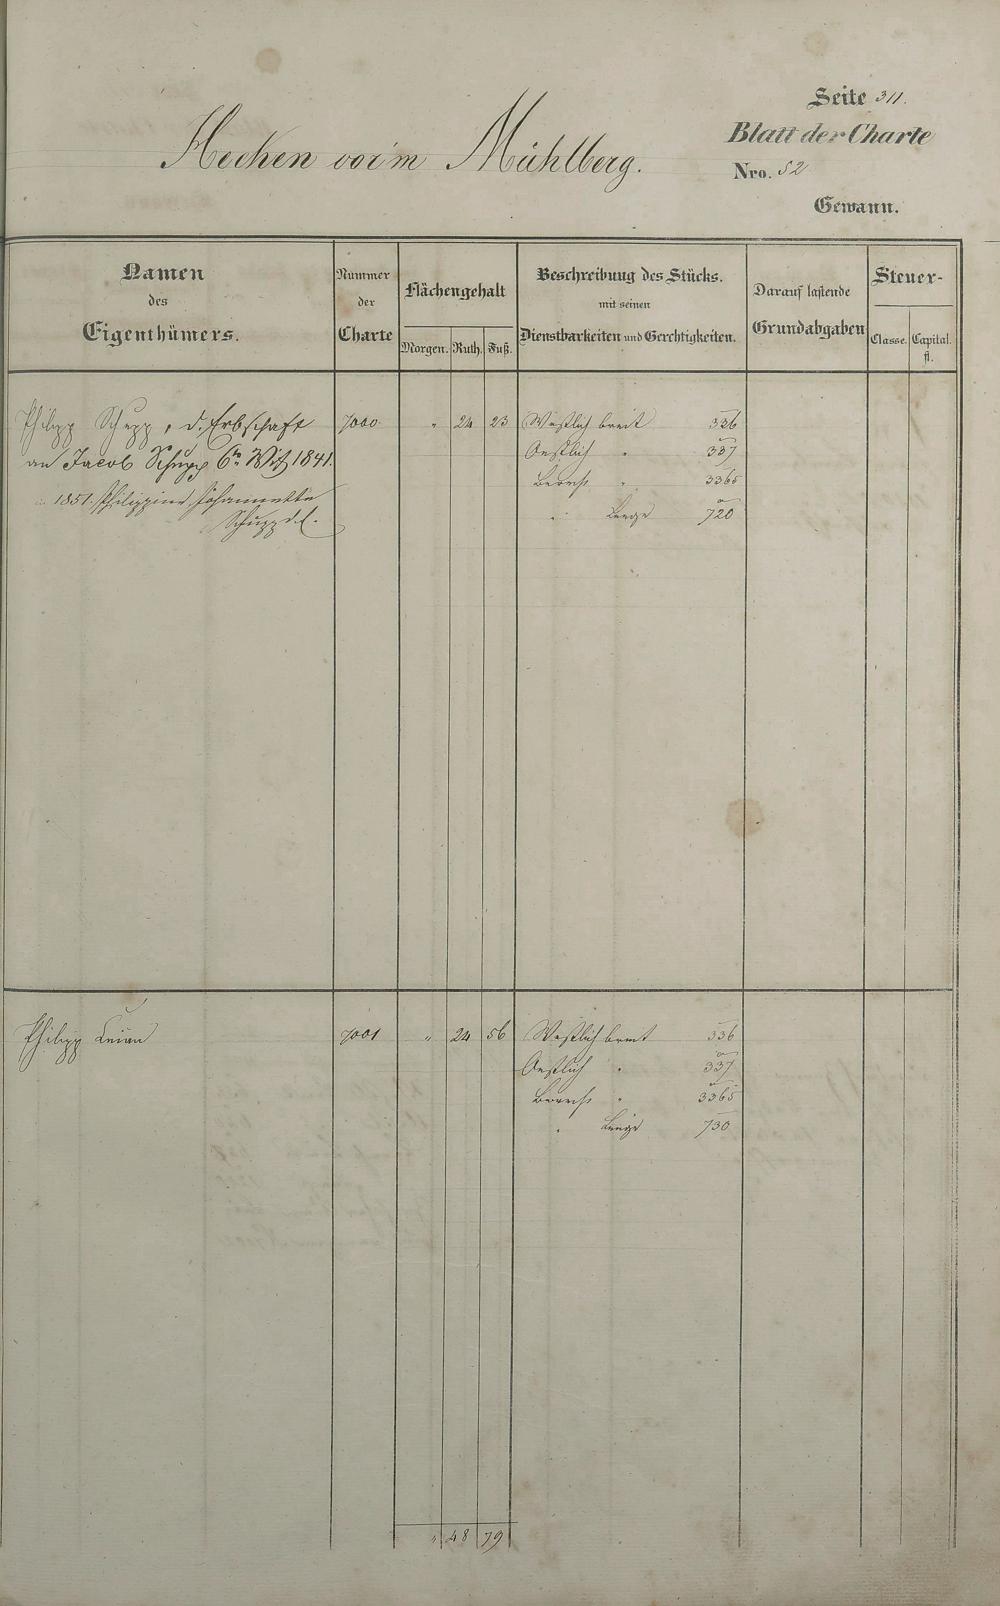 Seite 311.
Blatt der Charte
Nro. 52
Gewann.
Hecken vor'm Mühlberg.
Namen des Eigenthümers.
Nummer der Charte
Flächengehalt
Morgen. Ruth. Fuß.
Beschreibung des Stücks.
mit seinen
Dienstbarkeiten und Gerechtigkeiten.
Darauf lastende
Grundabgaben
Steuer-
Classe. Capital.
fl.
Philipp Schupp, d. Erbschaft 7000 " 24 23 Westlich breit 336
an Jacob Schupp 6r Wb 1841. Oestlich " 337
1851. Philippine Johannette 3365
Schupp d. l. " Länge 720
Philipp 7001 " 24 56 Westlich breit 336
Oestlich " 337
" 3365
" Länge 730
" 48 79